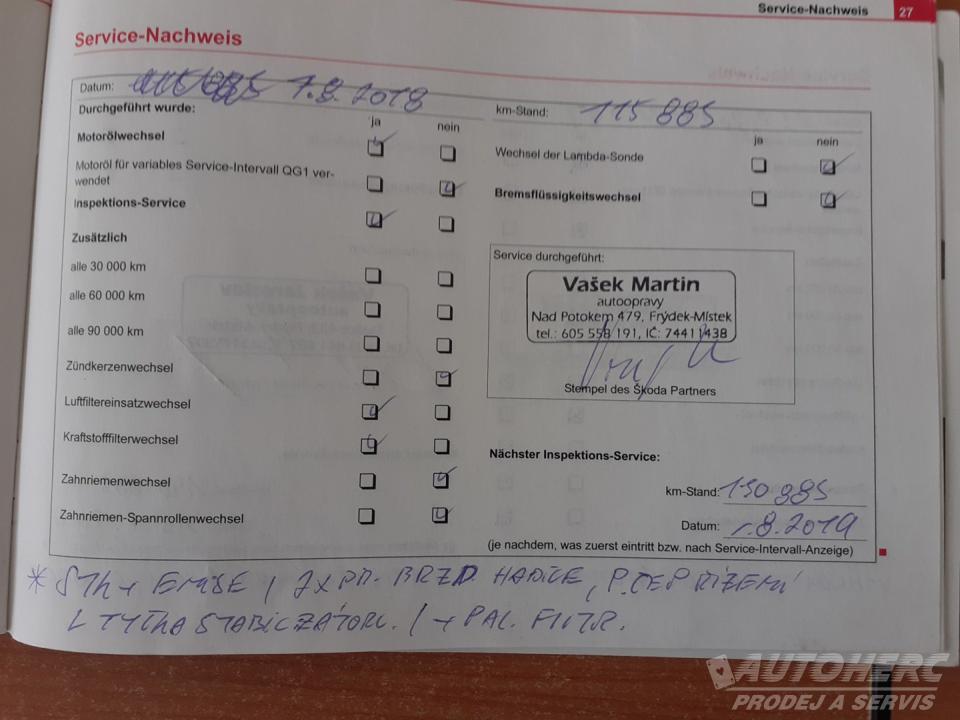 Service-Nachweis 27
Service-Nachweis
Datum: 1.8.2018
km-Stand: 115 885
Durchgeführt wurde:
ja nein
ja nein
Motorölwechsel
Wechsel der Lambda-Sonde
Motoröl für variables Service-Intervall QG1 ver-
wendet
Bremsflüssigkeitswechsel
Inspektions-Service
Zusätzlich
alle 30 000 km
alle 60 000 km
alle 90 000 km
Zündkerzenwechsel
Luftfiltereinsatzwechsel
Kraftstofffilterwechsel
Zahnriemenwechsel
Zahnriemen-Spannrollenwechsel
Service durchgeführt:
Vašek Martin
autoopravy
Nad Potokem 479, Frýdek-Místek
tel.: 605 558 191, IČ: 74411438
Stempel des Škoda Partners
Nächster Inspektions-Service:
km-Stand: 130 885
Datum: 1.8.2019
(je nachdem, was zuerst eintritt bzw. nach Service-Intervall-Anzeige)
* STK + EMISE, 2x PŘ. BRZD. HADICE, P. ČEP ŘÍZENÍ
L TYČKA STABILIZÁTORU. / + PAL. FILTR.
AUTOHERC
PRODEJ A SERVIS